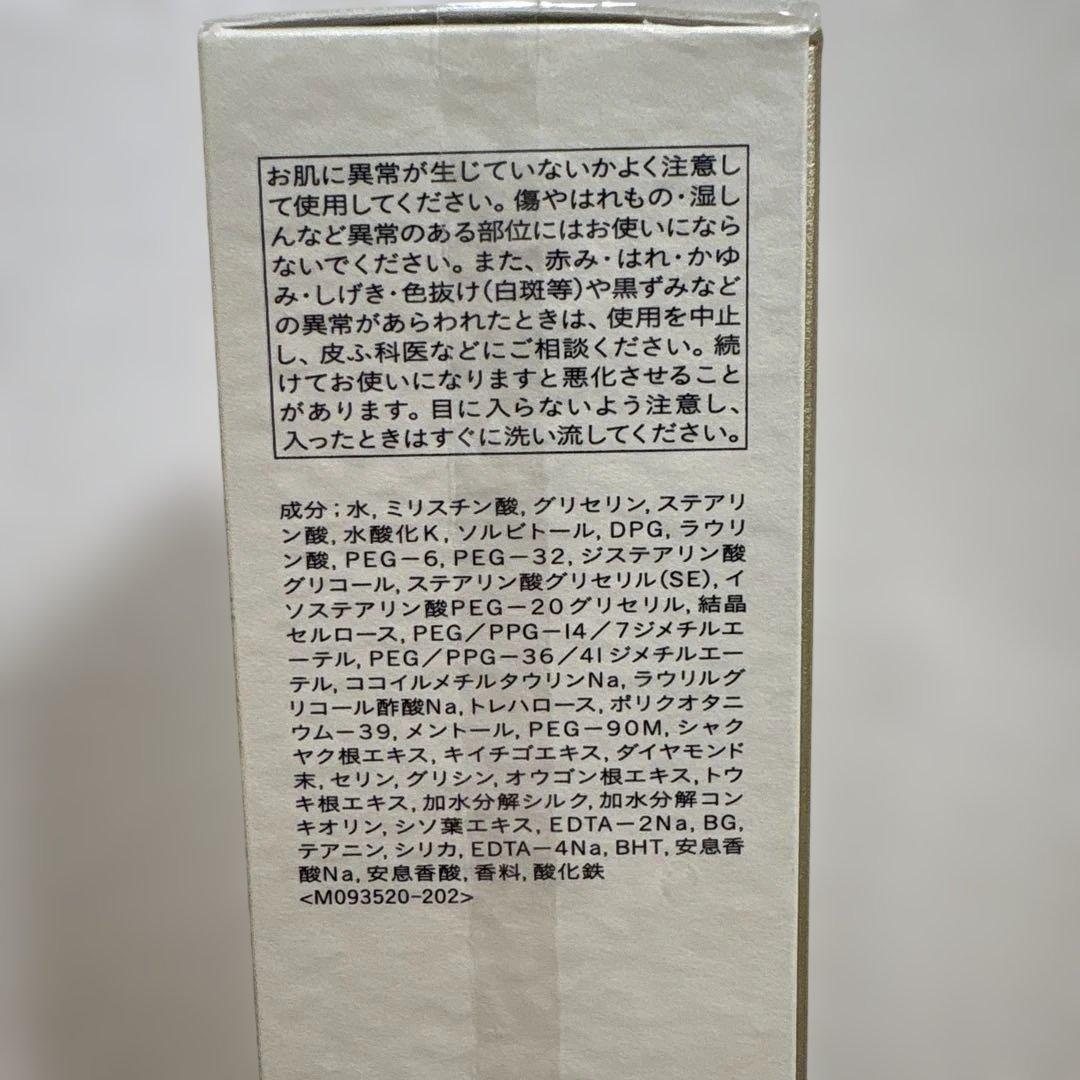 お肌に異常が生じていないかよく注意し
て使用してください。傷やはれもの・湿し
んなど異常のある部位にはお使いになら
ないでください。また、赤み・はれ・かゆ
み・しげき・色抜け(白斑等)や黒ずみなど
の異常があらわれたときは、使用を中止
し、皮ふ科医などにご相談ください。続
けてお使いになりますと悪化させること
があります。目に入らないよう注意し、
入ったときはすぐに洗い流してください。
成分;水,ミリスチン酸,グリセリン,ステアリ
ン酸,水酸化K,ソルビトール,DPG,ラウリ
ン酸,PEG-6,PEG-32,ジステアリン酸
グリコール,ステアリン酸グリセリル(SE),イ
ソステアリン酸PEG-20グリセリル,結晶
セルロース,PEG/PPG-14/7ジメチルエ
ーテル,PEG/PPG-36/41ジメチルエー
テル,ココイルメチルタウリンNa,ラウリルグ
リコール酢酸Na,トレハロース,ポリクオタニ
ウム-39,メントール,PEG-90M,シャク
ヤク根エキス,キイチゴエキス,ダイヤモンド
末,セリン,グリシン,オウゴン根エキス,トウ
キ根エキス,加水分解シルク,加水分解コン
キオリン,シソ葉エキス,EDTA-2Na,BG,
テアニン,シリカ,EDTA-4Na,BHT,安息香
酸Na,安息香酸,香料,酸化鉄
<M093520-202>